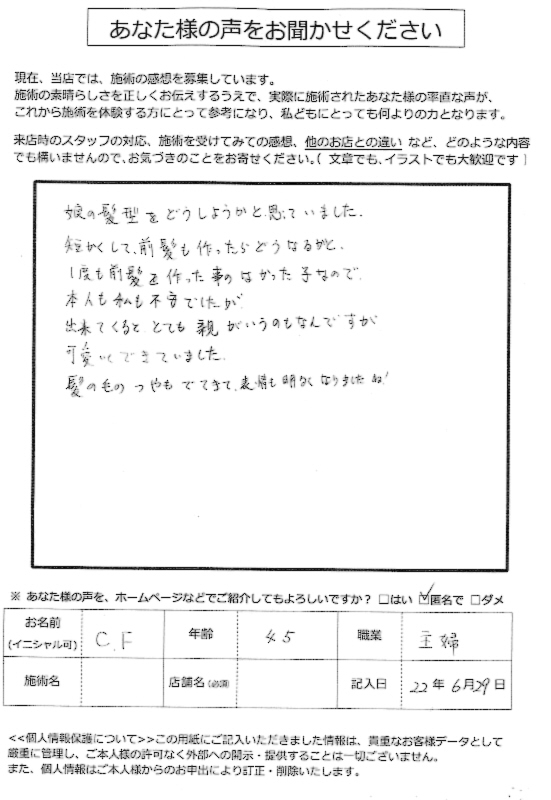 あなた様の声をお聞かせください
現在、当店では、施術の感想を募集しています。
施術の素晴らしさを正しくお伝えするうえで、実際に施術されたあなた様の率直な声が、
これから施術を体験する方にとって参考になり、私どもにとっても何よりの力となります。
来店時のスタッフの対応、施術を受けてみての感想、他のお店との違い など、どのような内容
でも構いませんので、お気づきのことをお寄せください。( 文章でも、イラストでも大歓迎です )
娘の髪型をどうしようかと思っていました。
短かくして、前髪も作ったらどうなるかと、
1度も前髪を作った事のなかった子なので、
本人も私も不安でしたが、
出来てくると とても 親がいうのもなんですが
可愛いくできていました。
髪の毛の つやも でてきて、表情も明るくなりましたね!
※ あなた様の声を、ホームページなどでご紹介してもよろしいですか? □はい ☑匿名で □ダメ
お名前
(イニシャル可)
C.F
年齢
45
職業
主婦
施術名
店舗名(必須)
記入日
22年 6月29日
<<個人情報保護について>>この用紙にご記入いただきました情報は、貴重なお客様データとして
厳重に管理し、ご本人様の許可なく外部への開示・提供することは一切ございません。
また、個人情報はご本人様からのお申出により訂正・削除いたします。